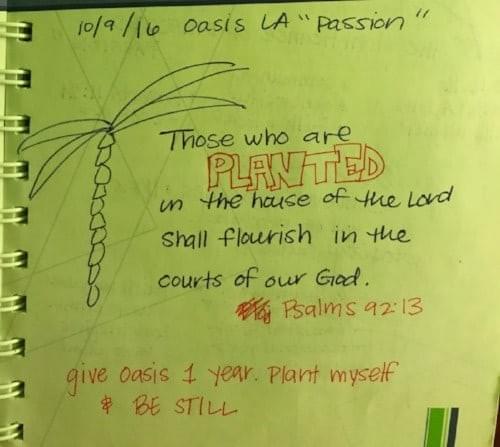 10/9/16 Oasis LA "Passion"
Those who are
PLANTED
in the house of the Lord
shall flourish in the
courts of our God.
Psalms 92:13
give Oasis 1 year. Plant myself
& BE STILL